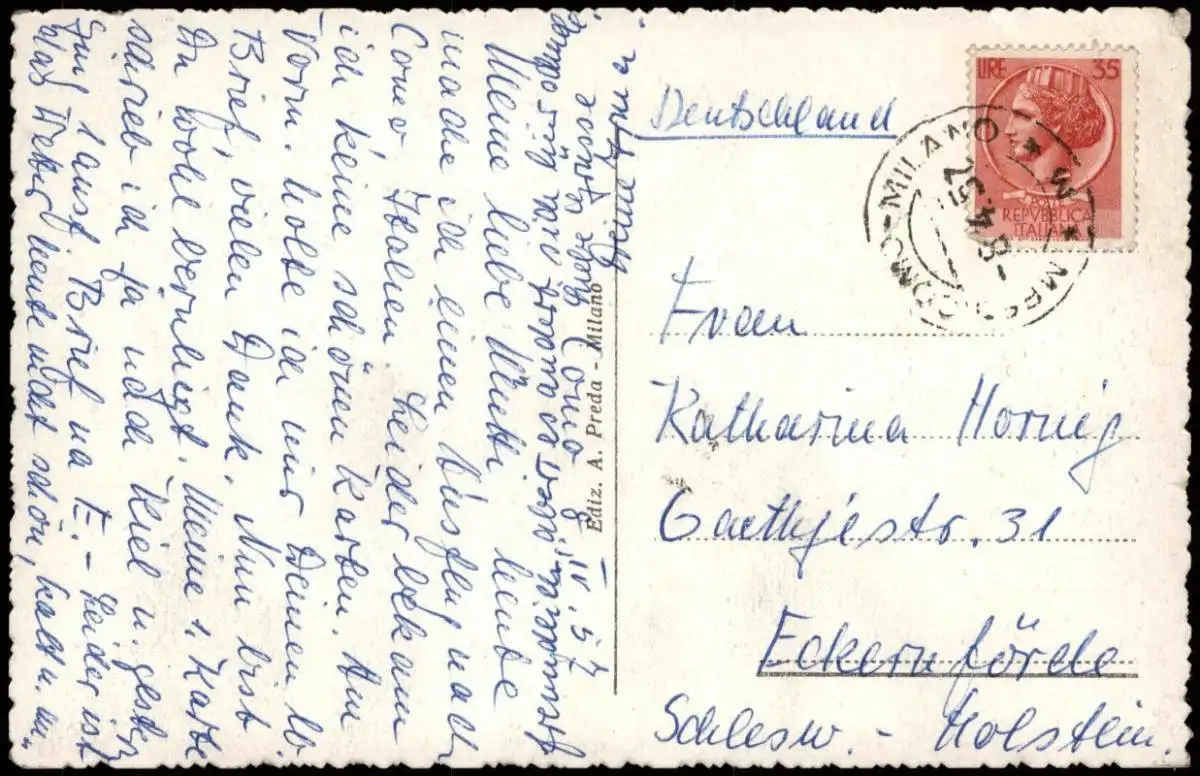 Como, 8. IV. 57
Meine liebe Mutti, heute
mache ich einen Ausflug nach
Como, Italien. Leider bekam
ich keine schönen Karten. Am
Vorm. holte ich mir Deinen lb.
Brief, vielen Dank. Nun bist
Du wohl beruhigt. Meine 1. Karte
schrieb ich ja nach Kiel u. gestern
ging 1 ausf. Brief na E. - Leider ist
das Wetter heute nicht schön, kalt u.
Deine
Ediz. A. Preda - Milano
Deutschland
LIRE 35
POSTE
REPVBBLICA
ITALIANA
MILANO
8.4.57
Frau
Katharina Hornig
Gaethjestr. 31
Eckernförde
Schlesw. - Holstein.